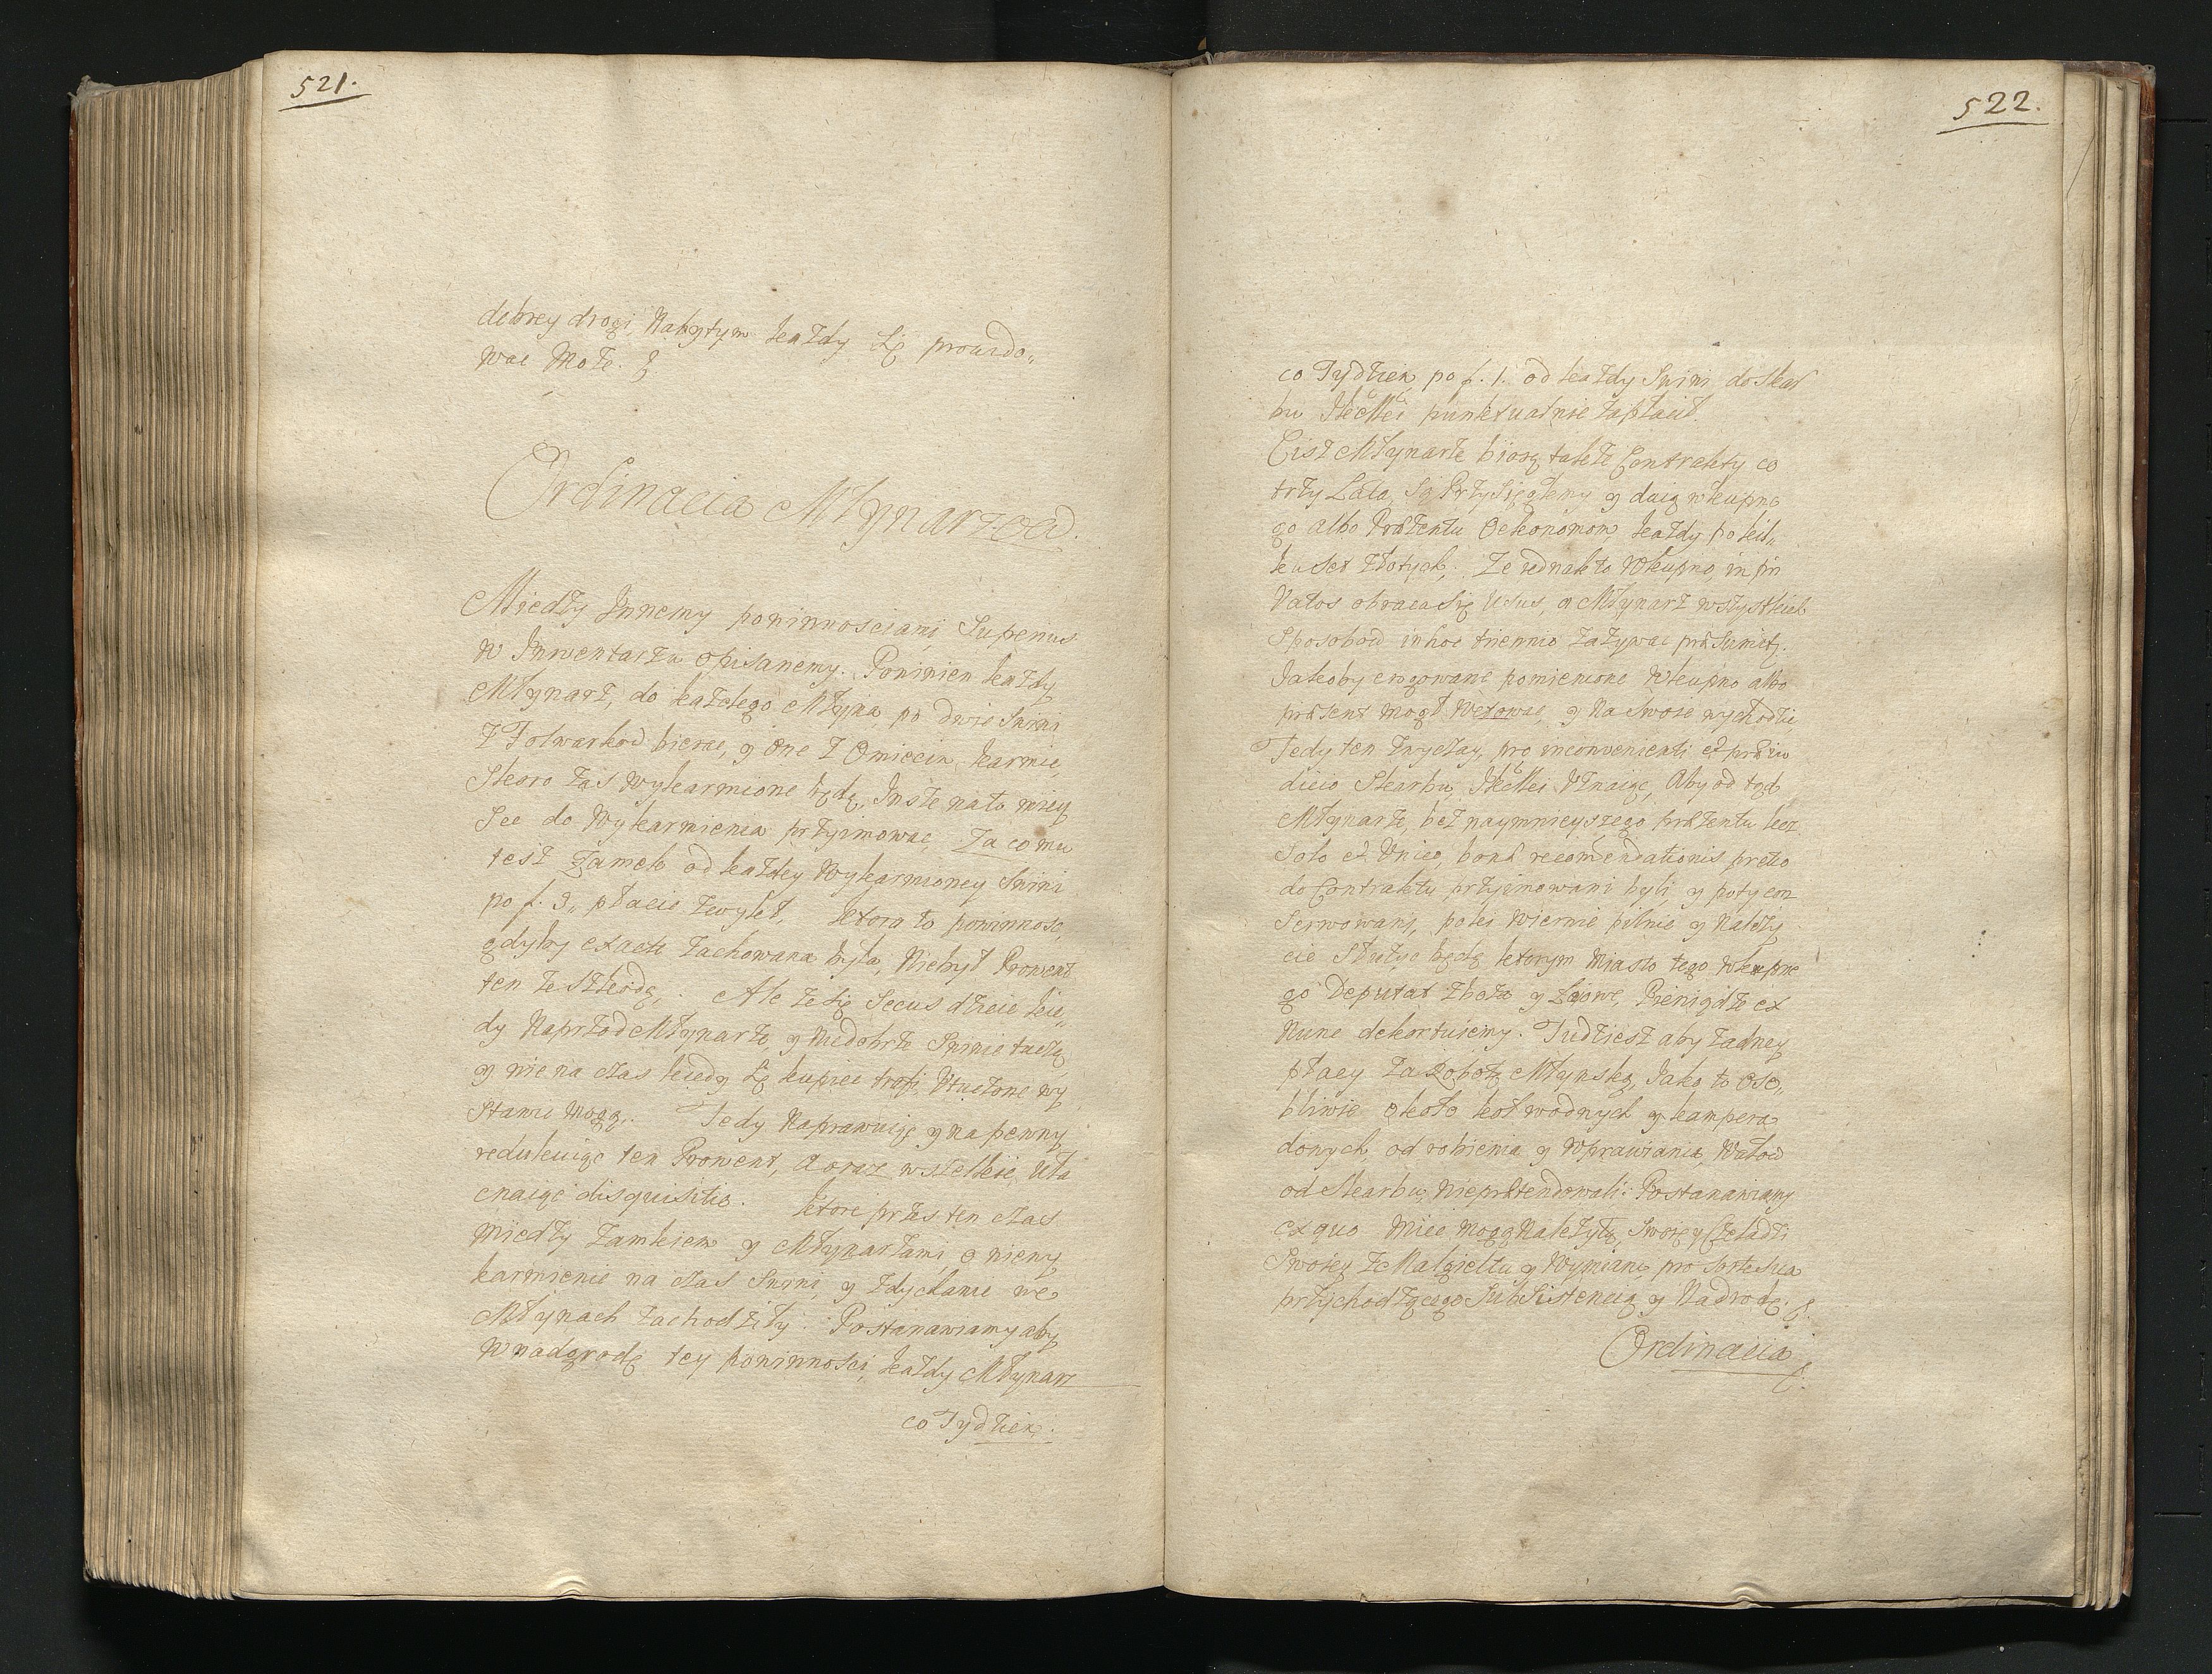 521.
dobrey drogi, Nabytym każdy się prowido„
wac Może.
Ordinacia Młynarzow.
Między Innemy powinnosciami Superius
W Inwentarzu opisanemy. Powinien każdy
Młynarz, do każdego Młyna po dwie Swini
Z Folwarkow bierac, y one z Omiecin karmic,
Skoro zas wykarmione będą, Insze na to miey
sce do Wykarmienia przyimowac, Za co mu
tesz Zamek od każdey Wykarmioney Swini
po f. 3„ płacic zwykł, ktora to powinnosc,
gdyby exacte zachowana była, Niebył Prowent
ten ze szkodą. Ale że się Secus dzieie kie„
dy Naprzod Młynarze y niedobrze Swinie tuczą
y nie na czas kiedy się kupiec trafi, Utuczone wy
stawic Mogą. Tedy Naprawuiąc y na pewny
redukuiąc ten Prowent, a oraz wszelkie Uła
cnaiąc disquisitie. ktore przes ten czas
Między Zamkiem y Młynarzami o niewy
karmienie na czas Swini, y zdychanie we
Młynach zachodziły. Postanawiamy aby
W nadgrodę tey powinnosci, każdy Młynarz
co Tydzien.
522.
co Tydzien po f. 1. od każdy Swini do skar
bu punktualnie zapłacił.
Cisz Młynarze biorą także Contrakty co
trzy Lata, są Przysięgłemy y daią wkupne
go albo Præzentu Oekonomom każdy po kil„
kuset złotych; Ze iednak to Wkupno, in pri
Vatos obraca się Usus, y Młynarz wszystkich
Sposobow in hoc triennio zażywac præsumit.
Jakoby erogowane pomienione Wkupno albo
præsent mogł Wetowac, y Na swoie wychodzic,
Tedy ten zwyczay, pro inconvenienti et præiu
dicio Skarbu, Uznaiąc, Aby od tąd
Młynarze, bez naymnieyszego præzentu lecz
solo et Unico, bonæ recomendationis pretio
do Contraktu przyimowani byli y poty con
serwowani, poki wiernie pilnie y Należy
cie Służyc będą ktorym Miasto tego Wkupne
go Deputat zboża y Pieniądze ex
Nunc dekortuiemy. Tudziesz aby żadney
płacy za Robotę Młynską, Jako to oso„
bliwie około koł wodnych y kampera
donych, od robienia y Wprawiania Wałow
od Skarbu, nieprætendowali: Postanawiamy
ex quo Miec mogą Należytą, Swoię y Czeladzi
Swoiey ze Malgieltu y Wymiaru pro sorte sua
przychodzącego Subsistencią y Nadrodę.
Ordinacia